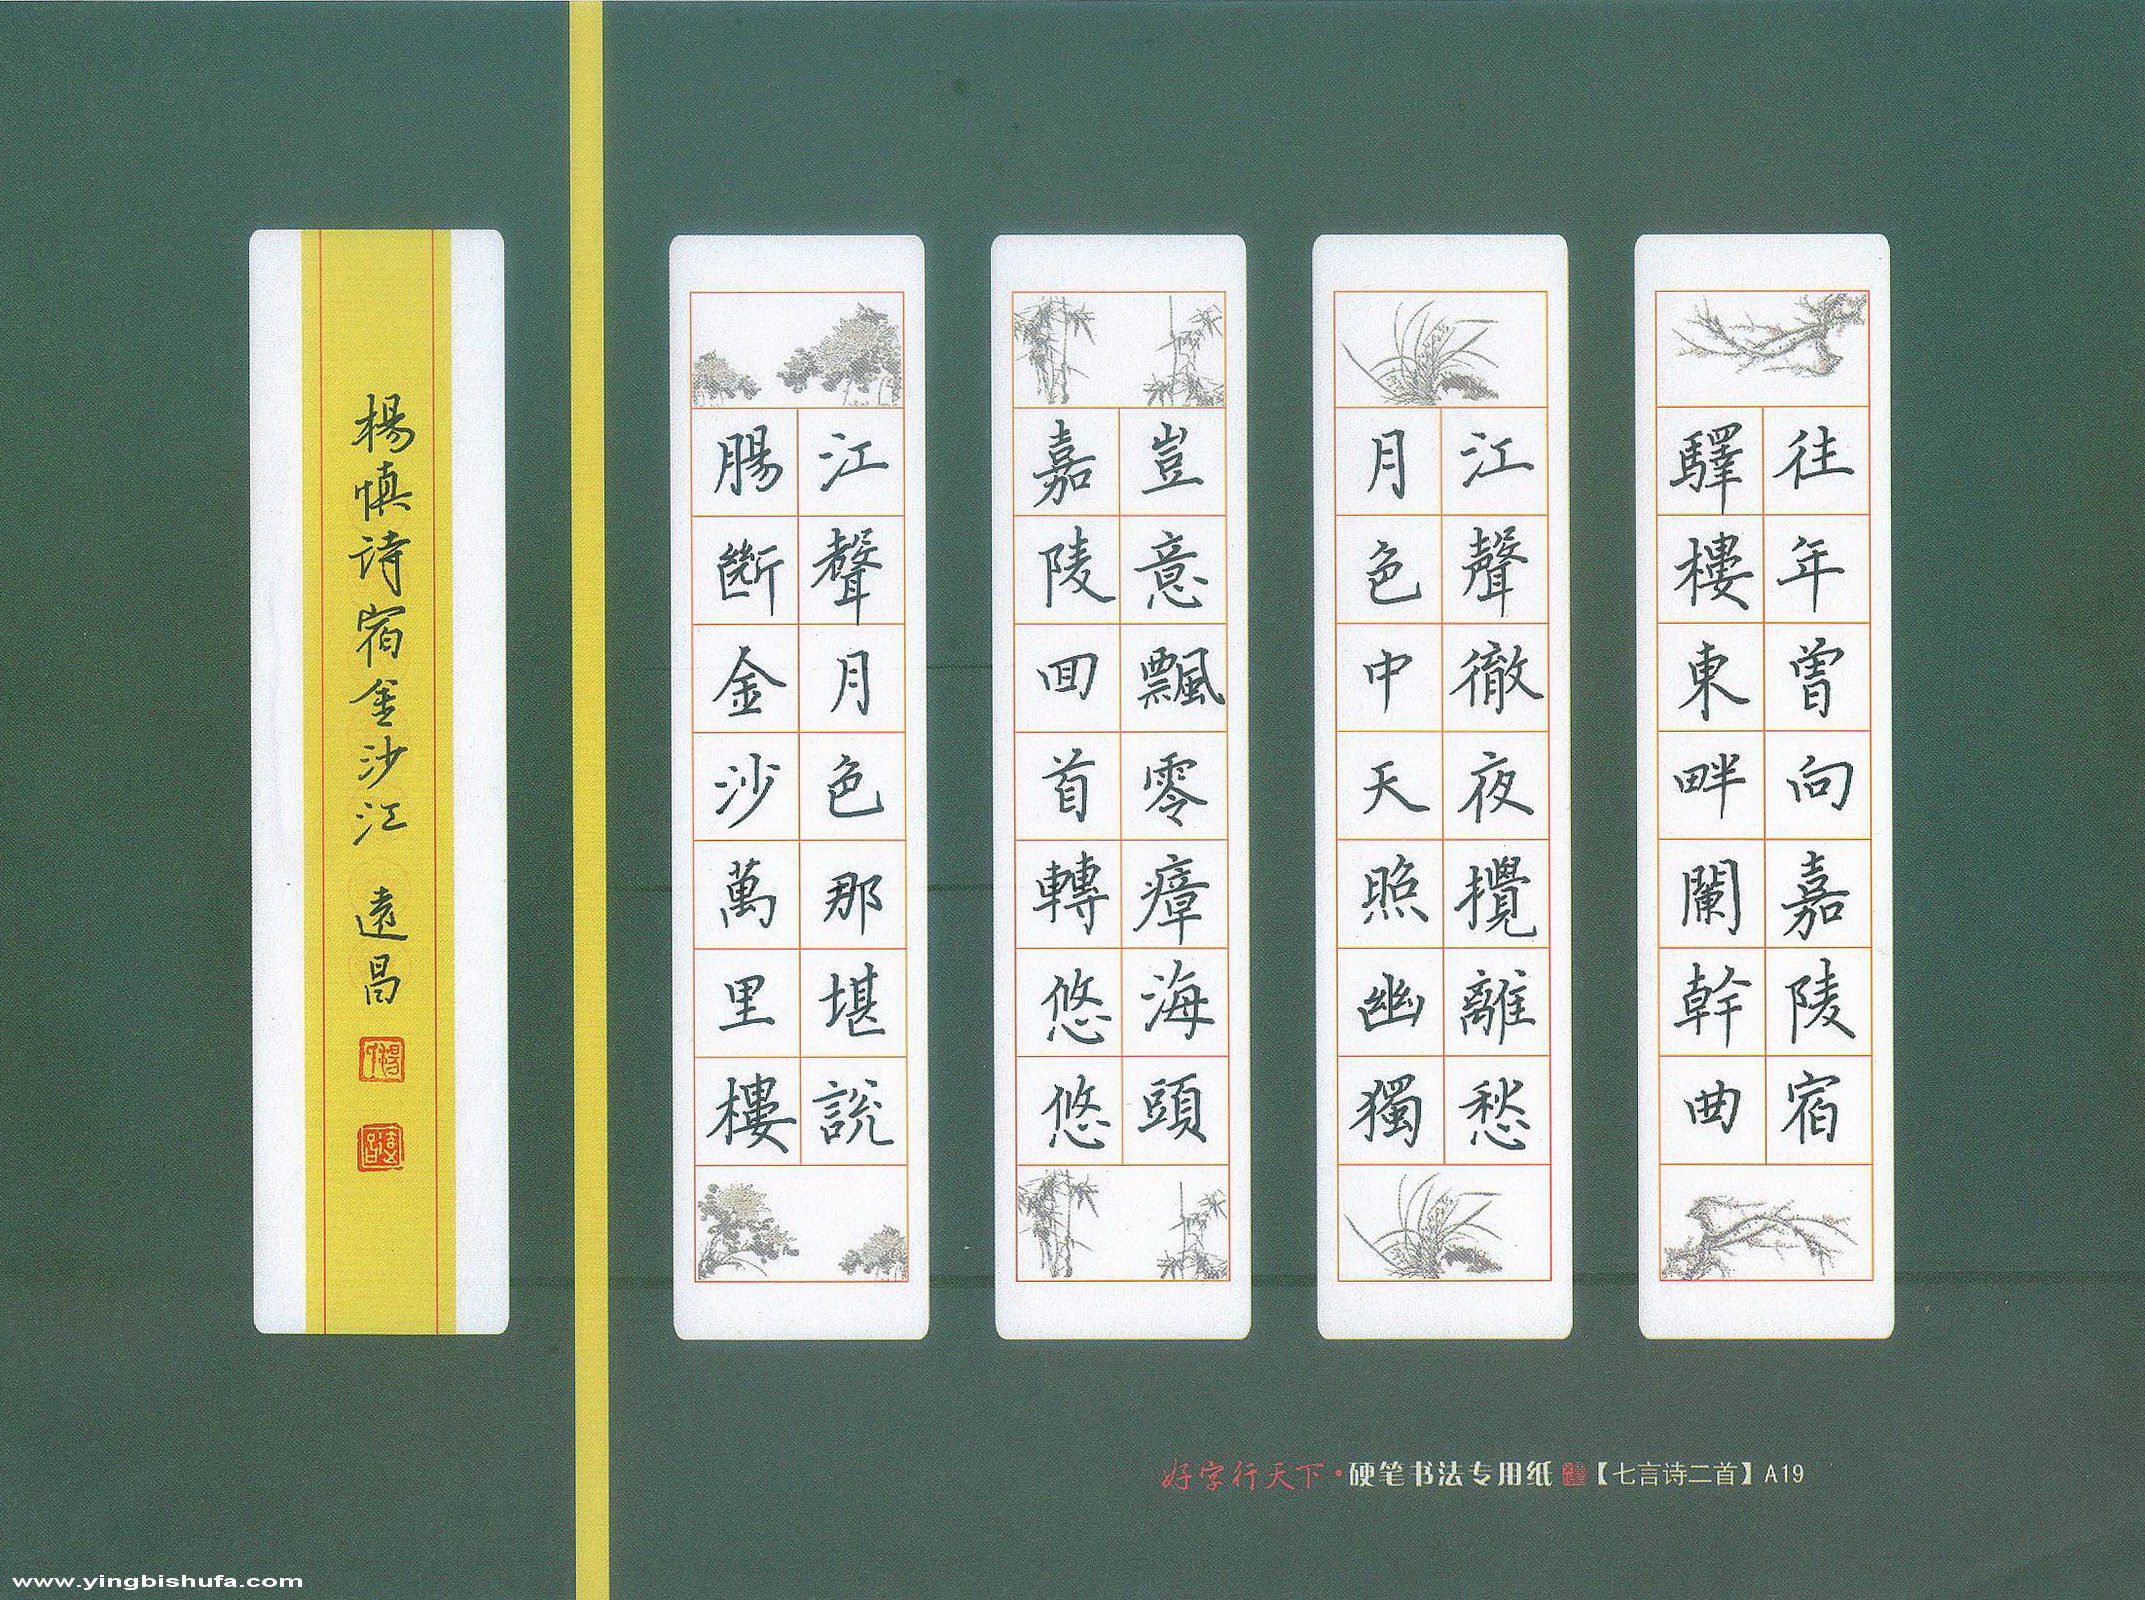 往年曾向嘉陵宿
驛樓東畔闌幹曲
江聲徹夜攪離愁
月色中天照幽獨
豈意飄零瘴海頭
嘉陵回首轉悠悠
江聲月色那堪說
腸斷金沙萬里樓
楊慎诗宿金沙江 遠昌
好字行天下·硬笔书法专用纸【七言诗二首】A19
www.yingbishufa.com